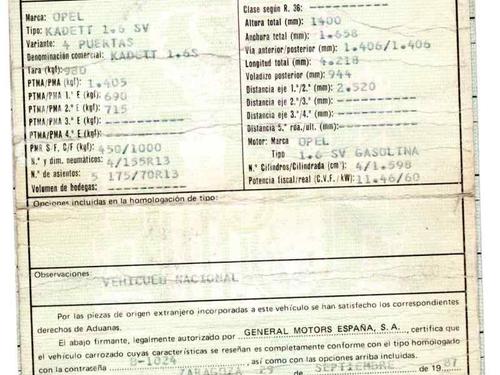 Marca: OPEL
Tipo: KADETT 1.6 SV
Variante: 4 PUERTAS
Denominación comercial: KADETT 1.6S
Tara (kgf): 980
PTMA/PMA (kgf): 1.405
PTMA/PMA 1.ª E (kgf): 690
PTMA/PMA 2.ª E (kgf): 715
PTMA/PMA 3.ª E (kgf): ----------
PTMA/PMA 4.ª E (kgf): ----------
PMR S/F, C/F (kgf): 450/1000
N.º y dim. neumáticos: 4/155R13
N.º de asientos: 5 175/70R13
Volumen de bodegas: ----------
Clase según R. 36: ----------
Altura total (mm): 1400
Anchura total (mm): 1.658
Vía anterior/posterior (mm): 1.406/1.406
Longitud total (mm): 4.218
Voladizo posterior (mm): 944
Distancia eje 1.º/2.º (mm): 2.520
Distancia eje 2.º/3.º (mm): ----------
Distancia eje 3.º/4.º (mm): ----------
Distancia 5.ª rda./ult. (mm): ----------
Motor: Marca OPEL
Tipo 1.6 SV GASOLINA
N.º Cilindros/Cilindrada (cm³): 4/1.598
Potencia fiscal/real (C.V.F./kW): 11.46/60
Opciones incluidas en la homologación de tipo:
Observaciones:
VEHICULO NACIONAL
Por las piezas de origen extranjero incorporadas a este vehículo se han satisfecho los correspondientes
derechos de Aduanas.
El abajo firmante, legalmente autorizado por GENERAL MOTORS ESPAÑA, S.A., certifica que
el vehículo carrozado cuyas características se reseñan es completamente conforme con el tipo homologado
con la contraseña B-1024, así como con las opciones arriba incluidas.
ZARAGOZA 29 de SEPTIEMBRE de 1987